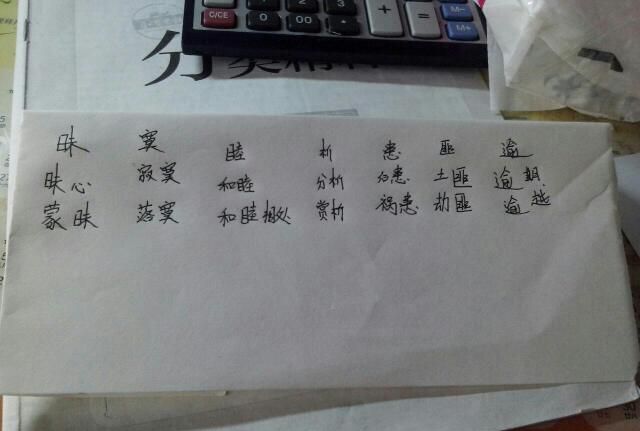 C/CE 0 00 + = M- M+
昧 寞 睦 析 患 匪 逾
昧心 寂寞 和睦 分析 为患 土匪 逾期
蒙昧 落寞 和睦相处 赏析 祸患 劫匪 逾越